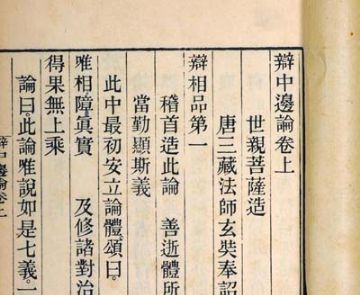 辯中邊論卷上
世親菩薩造
唐三藏法師玄奘奉詔
辯相品第一
稽首造此論　善逝體所
當勤顯斯義
此中最初安立論體頌曰。
唯相障眞實　及修諸對治
得果無上乘
論曰。此論唯說如是七義。一
辯中邊論卷上